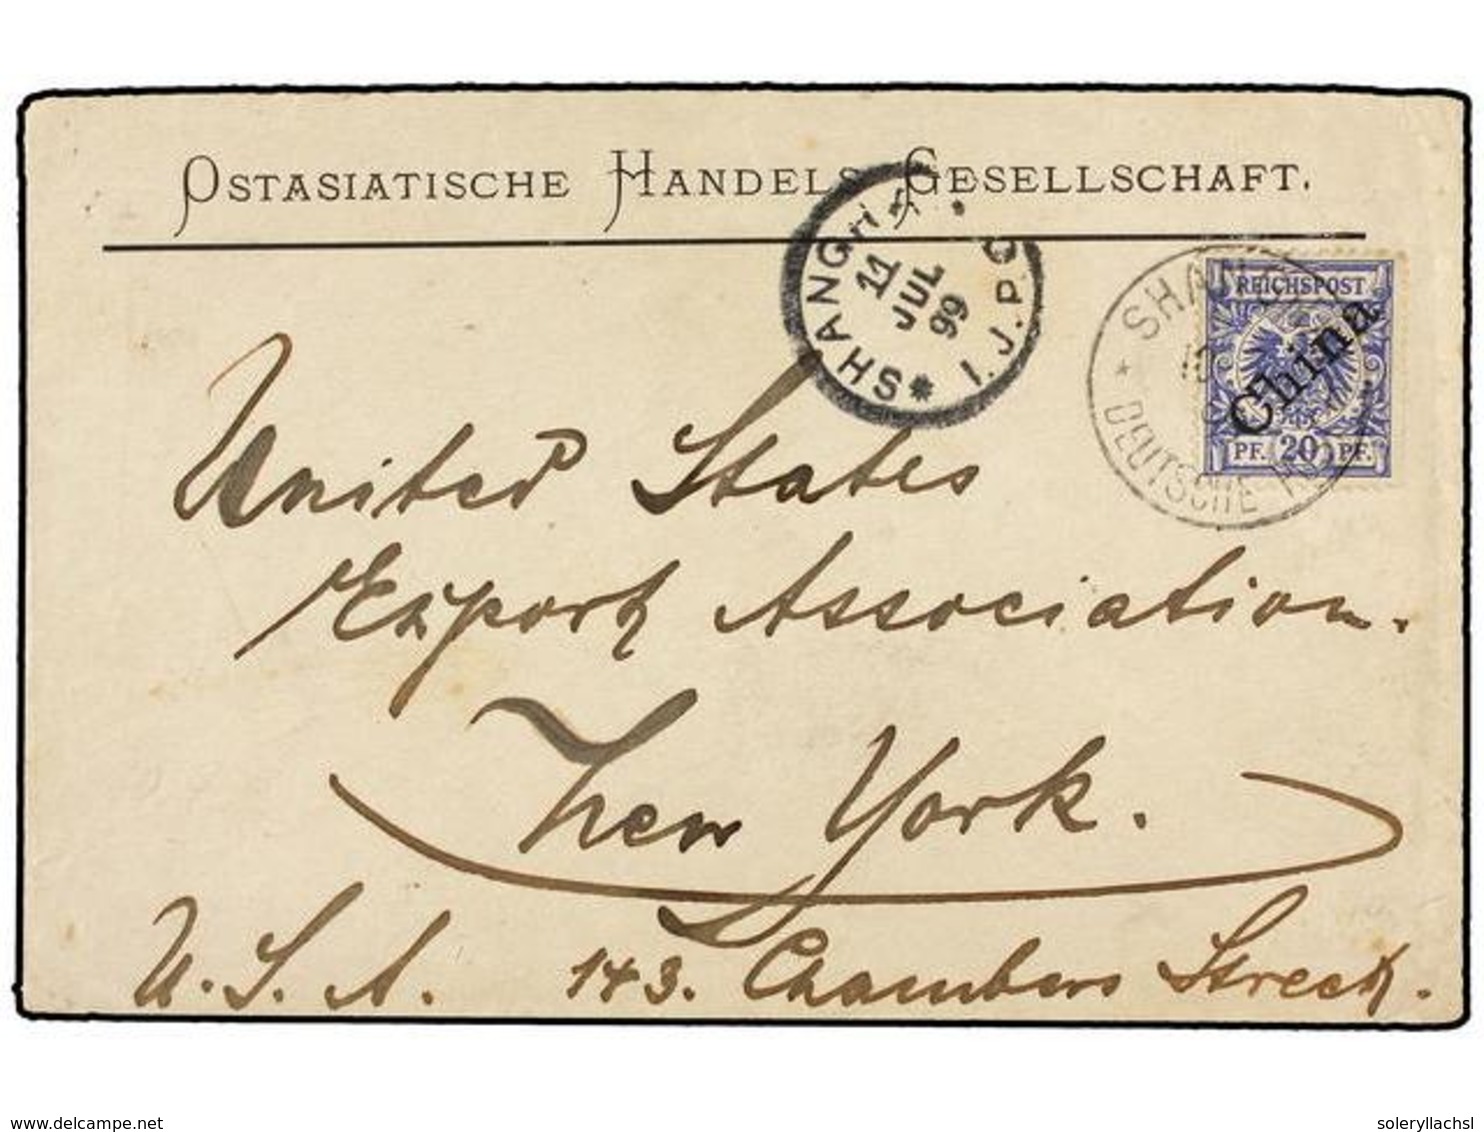 OSTASIATISCHE HANDELS GESELLSCHAFT.
SHANGHAI
11
JUL
99
I.J.P.O
SHANG
DEUTSCHE
REICHSPOST
China
PF. 20 PF.
United States
Export Association.
New York.
U.S.A. 143. Chambers Street.
www.delcampe.net
soleryllachsl